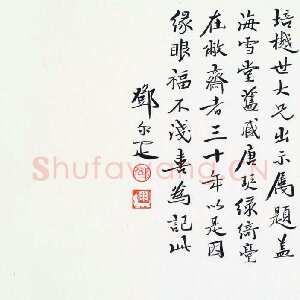 培樾世大兄出示屬題蓋
海雪堂舊藏唐琴綠綺臺
在敝齋者三十年以是因
緣眼福不淺喜為記此
鄧尔疋
Shufawang.CN